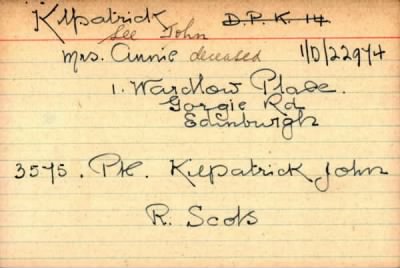 Kilpatrick D.P.K. 14
See John
Mrs. Annie deceased 1/D/22974
1. Wardlow Place.
Gorgie Rd
Edinburgh
3575. Pte. Kilpatrick John
R. Scots